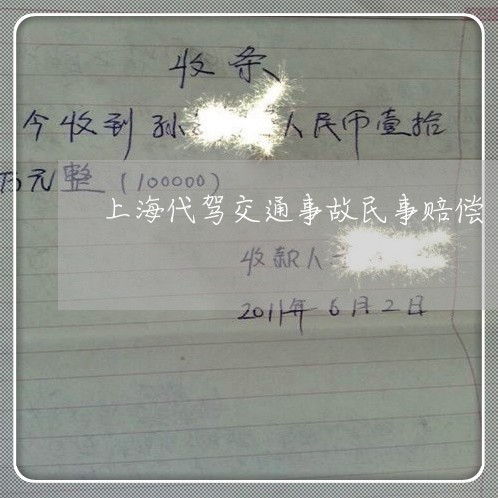 收条
今收到孙 人民币壹拾
万元整（100000）
上海代驾交通事故民事赔偿
收款人
2011年6月2日